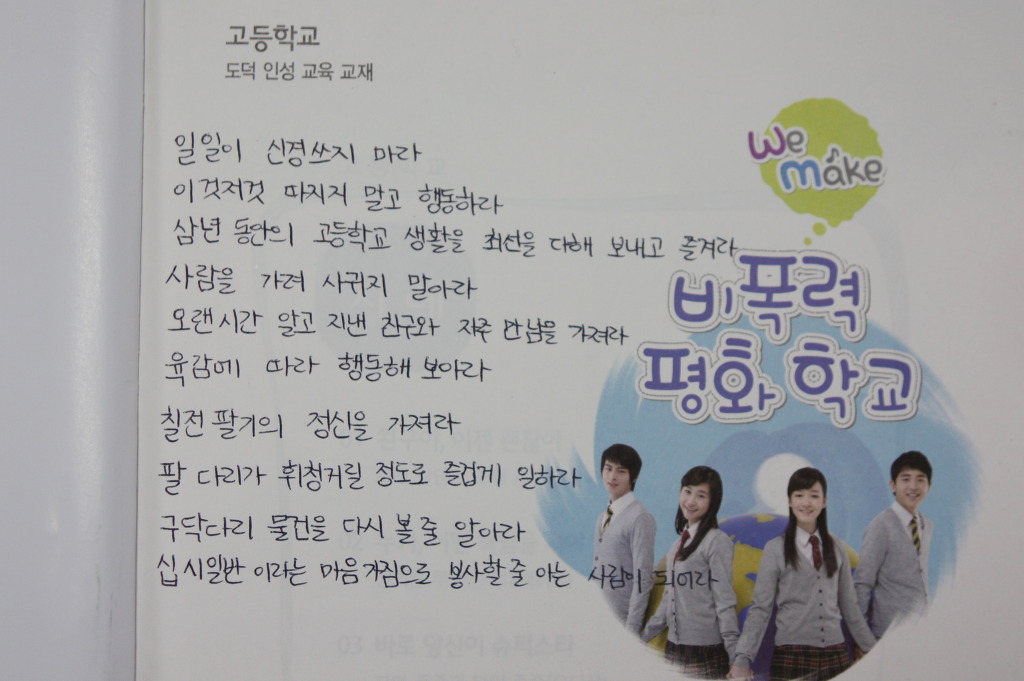 고등학교
도덕 인성 교육 교재
We make
비폭력
평화 학교
일일이 신경쓰지 마라
이것저것 따지지 말고 행동하라
삼년 동안의 고등학교 생활을 최선을 다해 보내고 즐겨라
사람을 가려 사귀지 말아라
오랜시간 알고 지낸 친구와 자주 만남을 가져라
육감에 따라 행동해 보아라
칠전 팔기의 정신을 가져라
팔 다리가 휘청거릴 정도로 즐겁게 일하라
구닥다리 물건을 다시 볼 줄 알아라
십시일반 이라는 마음가짐으로 봉사할 줄 아는 사람이 되어라
03 바로 당신이 슈퍼스타